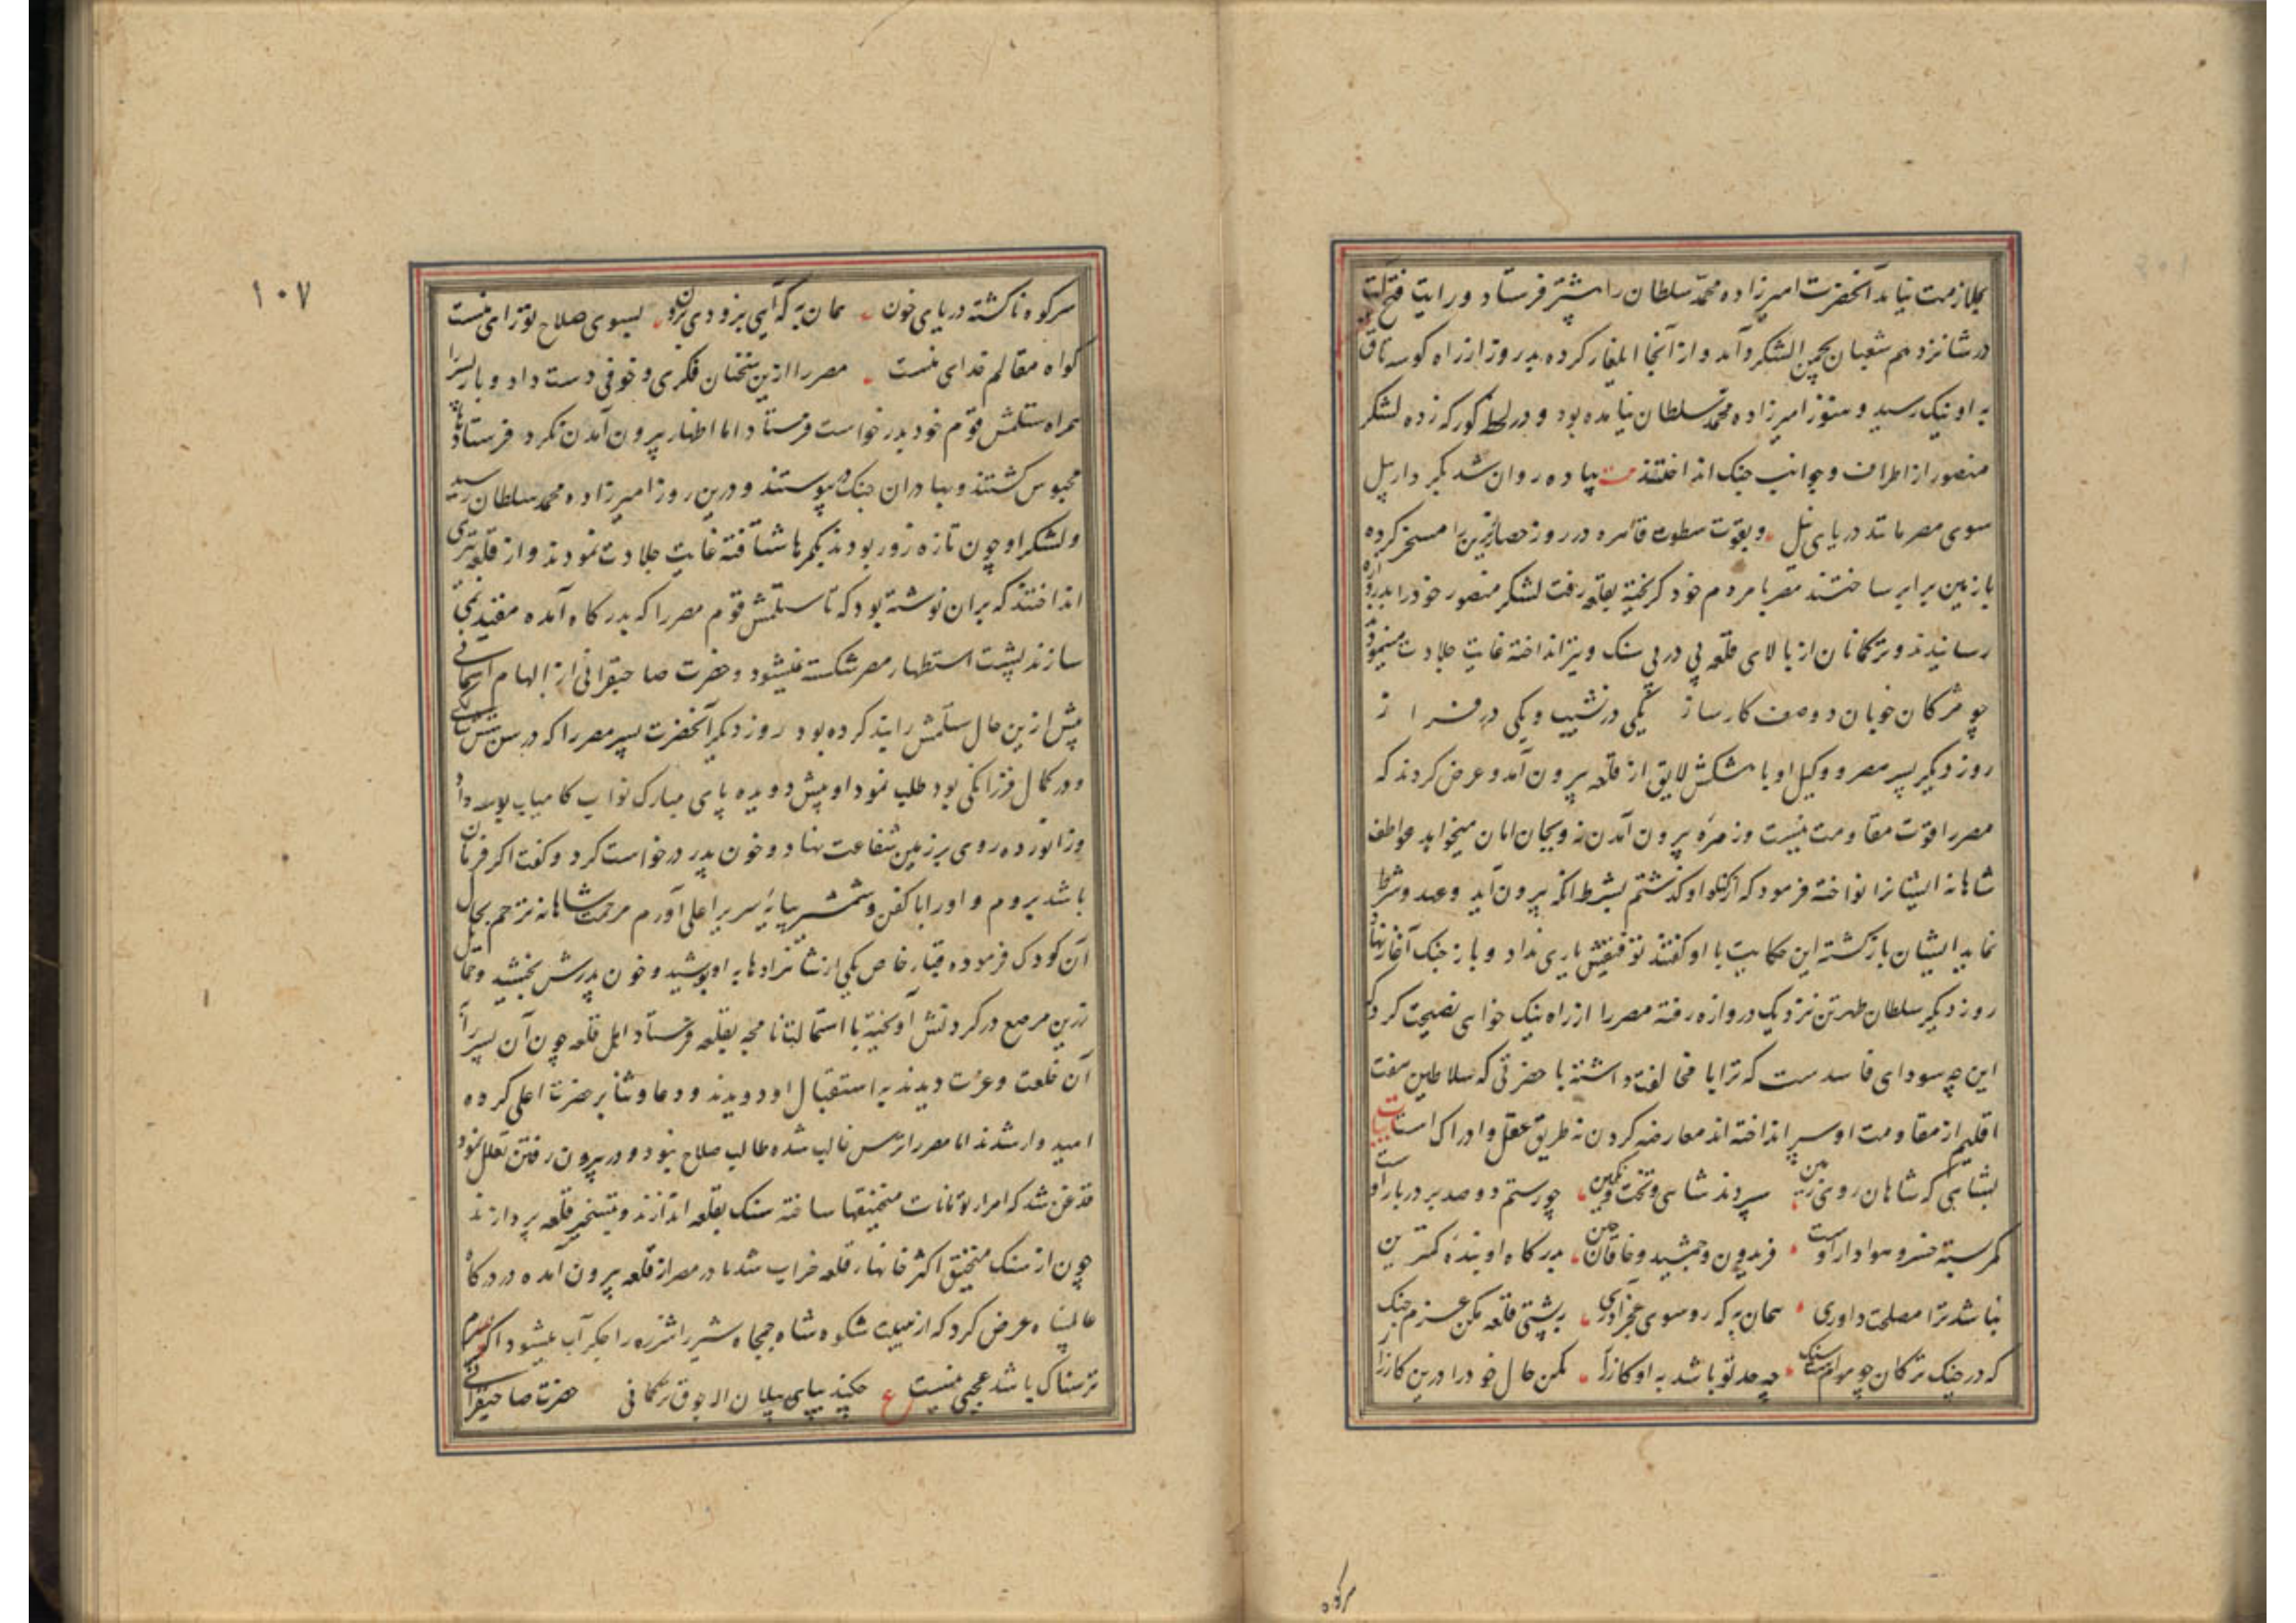 بملازمت نیاید آنحضرت امیرزاده محمد سلطان را پیشتر فرستاد و رایت فتح آیت
در شانزدهم شعبان بمحمن الشکرد آمد و از آنجا ایلغار کرده بدر روز از راه کوسه تاق
به اونیک رسید و هنوز امیرزاده محمد سلطان نیامده بود و در لحظه کورکه زده لشکر
منصور از اطراف و جوانب جنک انداختند پیاده روان شد بکردار پیل
سوی مصر مانند دریای نیل و بقوت سطوت قاهره در روز حصار زیرین را مسخر کرده
با زمین برابر ساختند مصر با مردم خود کریخته بقلعه رفت لشکر منصور خود را بدروازه
رسانیدند و ترکمانان از بالای قلعه پی در پی سنک و تیر انداخته غایت جلادت مینمودند
چو مژکان خوبان دو صف کارساز یکی در نشیب و یکی در فراز
روز دیکر پسر مصر و وکیل او با پیشکش لایق از قلعه بیرون آمد و عرض کردند که
مصر را قوت مقاومت نیست و زهرهٔ بیرون آمدن نه و بجان امان میخواهد عواطف
شاهانه ایشانرا نواخته فرمود که از کناه او کذشتم بشرط آنکه بیرون آید و عهد و شرط
نماید ایشان بازکشته این حکایت با او کفتند توفیقش یاری نداد و باز جنک آغاز نهاد
روز دیکر سلطان طهرتن نزدیک دروازه رفته مصر را از راه نیک خواهی نصیحت کرد که
این چه سودای فاسدست که ترا با مخالفت داشته با حضرتی که سلاطین هفت
اقلیم از مقاومت او سپر انداخته اند معارضه کردن نه طریق عقل و ادراک است ابیات
بشاهی که شاهان روی زمین سپردند شاهی و تخت و نکین چو رستم دو صد بر در بار اوست
کمر بسته خسرو هوادار اوست فریدون و جمشید و خاقان چین بدرکاه او بندهٔ کمترین
نباشد ترا مصلحت داوری همان به که رو سوی عجز آوری به پشتی قلعه مکن عزم جنک
که در جنک ترکان چو مومست سنک چه حد تو باشد به او کارزار مکن حال خود را درین کار زار
هرکوه
۱۰۷
سر کوه ناکشته دریای خون همان به که آیی بزودی برون بسوی صلاح تو رای منست
کواه مقالم خدای منست مصر را ازین سخنان فکری و خوفی دست داد و باز پسر را
همراه ستلمش قوم خود بدرخواست فرستاد اما اظهار بیرون آمدن نکرد فرستادها
محبوس کشتند و بهادران جنک پیوستند و درین روز امیرزاده محمد سلطان رسید
و لشکر او چون تازه زور بودند بکمرها شتافته غایت جلادت نمودند و از قلعه تیری
انداختند که بران نوشته بود که تا ستلمش قوم مصر را که بدرکاه آمده مقید نمی
سازند پشت استظهار مصر شکسته نمیشود و حضرت صاحبقرانی از الهام آسمانی
پیش ازین حال ستلمش را بند کرده بود روز دیکر آنحضرت پسر مصر را که در سن شش سالکی
و در کمال فرزانکی بود طلب نمود او پیش دویده پای مبارک نواب کامیاب بوسه داد
و زانو زده روی بر زمین شفاعت نهاد و خون پدر درخواست کرد و کفت اکر فرمان
باشد بروم و او را با کفن و شمشیر بپایهٔ سریر اعلی آورم مرحمت شاهانه ترحم بحال
آن کودک فرموده قبای خاص یکی از شاهزادها به او پوشید و خون پدرش بخشید و حمایل
زرین مرصع در کردنش آویخته با استمالتنامچه بقلعه فرستاد اهل قلعه چون آن پسر را
آن خلعت و عزت دیدند به استقبال او دویدند و دعا و ثنا بر حضرت اعلی کرده
امیدوار شدند اما مصر را ترس غالب شده طالب صلاح نبود و در بیرون رفتن تعلل نمود
قدغن شد که امرا و تومانات منجنیقها ساخته سنک بقلعه اندازند و بتسخیر قلعه پردازند
چون از سنک منجنیق اکثر خانهاء قلعه خراب شد مادر مصر از قلعه بیرون آمده در درکاه
عالم پناه عرض کرد که از هیبت شکوه شاه جمجاه شیر شرزه را جکر آب میشود اکر پسرم
ترسناک باشد عجبی نیست ع چکند بپای پیلان الاجوق ترکمانی حضرت صاحبقرانی